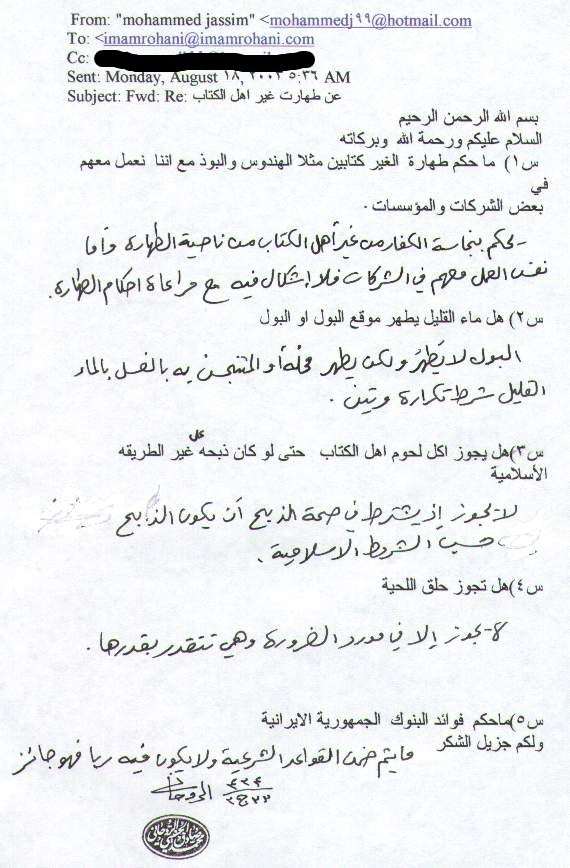 From: "mohammed jassim" <mohammedj۹۹@hotmail.com
To: <imamrohani@imamrohani.com
Cc:
Sent: Monday, August ۱۸, ۲۰۰۳ ۵:۳۶ AM
Subject: Fwd: Re: عن طهارت غير اهل الكتاب
بسم الله الرحمن الرحيم
السلام عليكم ورحمة الله وبركاته
س۱) ما حكم طهارة الغير كتابين مثلا الهندوس والبوذ مع اننا نعمل معهم
في
بعض الشركات والمؤسسات.
- يحكم بنجاسة الكفار من غير أهل الكتاب من ناحية الطهارة وأما
نفس العمل معهم في الشركات فلا إشكال فيه مع مراعاة احكام الطهارة.
س۲) هل ماء القليل يطهر موقع البول او البول
البول لا يَطهرُ ولكن يطهر محلّه أو المتنجس به بالغسل بالماء
القليل شرط تكراره مرتين.
س۳)هل يجوز اكل لحوم اهل الكتاب حتى لو كان ذبحه على غير الطريقه
الأسلامية
لا يجوز إذ يشترط في صحة الذبح أن يكون الذابح
حسب الشروط الاسلامية.
س٤)هل تجوز حلق اللحية
لا يجوز إلا في مورد الضرورة وهي تتقدر بقدرها.
س۵)ماحكم فوائد البنوك الجمهورية الايرانية
ولكم جزيل الشكر
ما يتم ضمن القواعد الشرعية ولا يكون فيه ربا فهو جائز
الروحاني